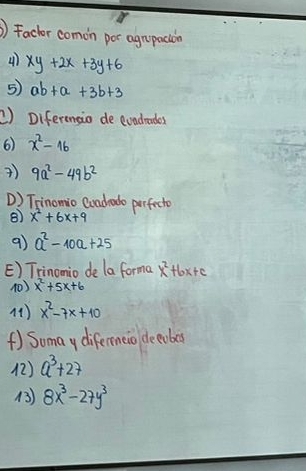 ) Factor común por agrupación
4) xy + 2x + 3y + 6
5) ab + a + 3b + 3
C) Diferencia de cuadrados
6) x² - 16
7) 9a² - 49b²
D) Trinomio cuadrado perfecto
8) x² + 6x + 9
9) a² - 10a + 25
E) Trinomio de la forma x² + bx + c
10) x² + 5x + 6
11) x² - 7x + 10
f) Suma y diferencia de cubos
12) a³ + 27
13) 8x³ - 27y³